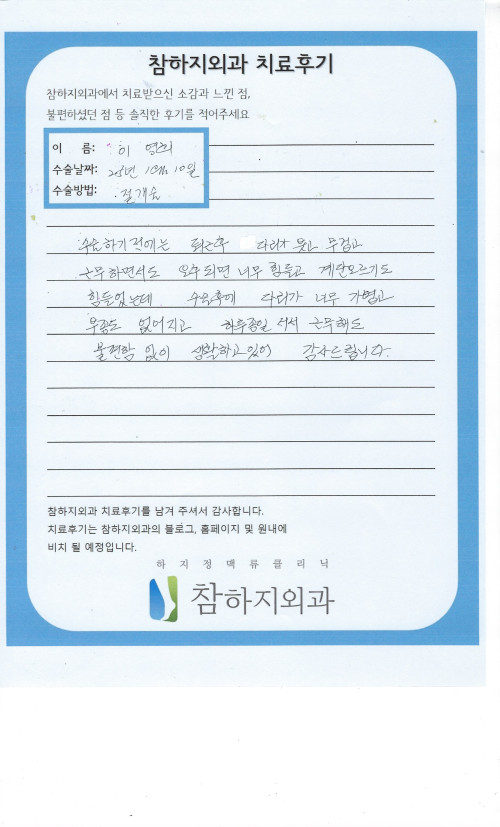 참하지외과 치료후기
참하지외과에서 치료받으신 소감과 느낀 점,
불편하셨던 점 등 솔직한 후기를 적어주세요
이 름: 이 영희
수술날짜: 25년 10월 10일
수술방법: 절개술
수술하기 전에는 퇴근후 다리가 붓고 무겁고
근무하면서도 오후되면 너무 힘들고 계단오르기도
힘들었는데 수술후에 다리가 너무 가볍고
부종도 없어지고 하루종일 서서 근무해도
불편함 없이 생활하고있어 감사드립니다.
참하지외과 치료후기를 남겨 주셔서 감사합니다.
치료후기는 참하지외과의 블로그, 홈페이지 및 원내에
비치 될 예정입니다.
하지정맥류클리닉
참하지외과